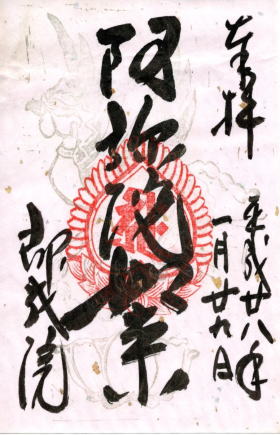 奉拝
平成廿八年
一月廿九日
阿弥陀如来
即成院